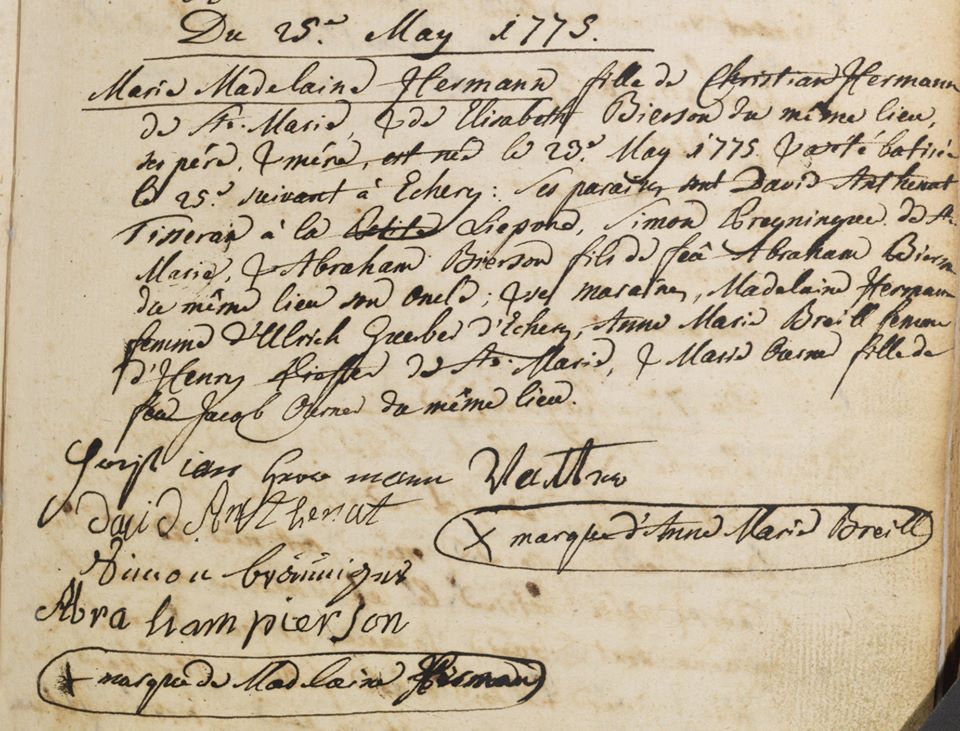 Du 25.e May 1775.
Marie Madelaine Hermann fille de Christian Hermann
de Ste. Marie, & de Elisabeth Bierson du même lieu,
ses péré, & méré, est née le 23.e May 1775. & a été batisée
le 25.e suivant à Echery: Ses parains sont David Anthenat
Tisseran à la Petite Liepvre, Simon Breyninguer de Ste.
Marie, & Abraham Bierson fils de feû Abraham Bierson
du même lieu son oncle; & ses maraines, Madelaine Hermann
femme d'Ulrich Guerber d'Echery, Anne Marie Breill femme
d'Henry Kieffer de Ste. Marie, & Marie fille de
feu Jacob du même lieu.
mann Vatter
david AnThenat
Simon
Abraham pierson
X marque d'Anne Marie Breill
+ marque de Madelaine Hermann